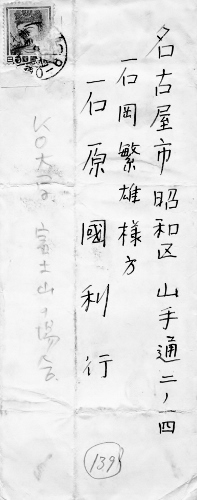 名古屋市昭和区山手通二ノ一四
石岡繁雄様方
石原國利行
KO大学 富士山の場合
139